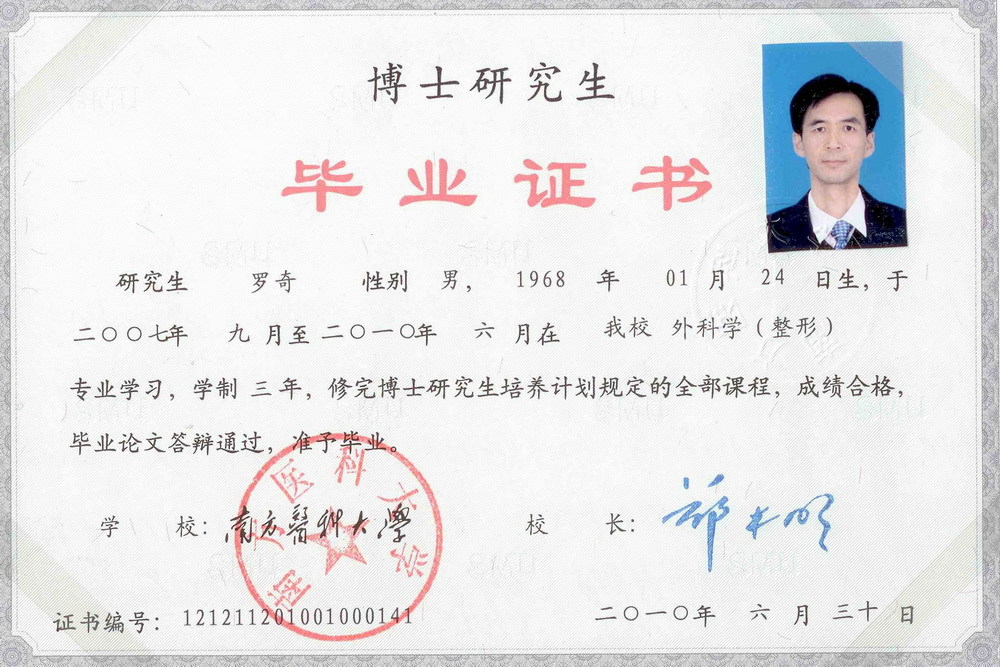 博士研究生
毕业证书
研究生 罗奇 性别 男， 1968 年 01 月 24 日生，于
二〇〇七年 九 月至二〇一〇年 六 月在 我校 外科学（整形）
专业学习，学制 三 年，修完博士研究生培养计划规定的全部课程，成绩合格，
毕业论文答辩通过，准予毕业。
学 校：南方醫科大學
南方医科大学
校 长：
证书编号：121211201001000141
二〇一〇年 六 月 三十 日